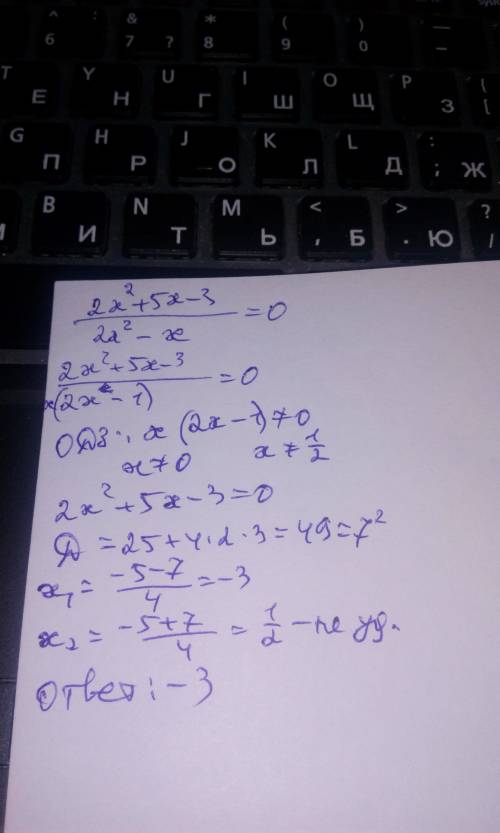 ^ : & * ( ) —
6 7 ? 8 9 0 –
T Y U I O P {
Е Н Г Ш Щ З [
G H J K L :
П Р О Л Д ; Ж
B N M < > ?
И Т Ь , Б . Ю /
2x²+5x-3 / 2x²-x =0
2x²+5x-3 / x(2x-1) =0
ОДЗ: x(2x-1)≠0
x≠0 x≠1/2
2x²+5x-3=0
Д=25+4·2·3=49=7²
x₁= -5-7 / 4 =-3
x₂= -5+7 / 4 = 1/2 – не уд.
Ответ: -3